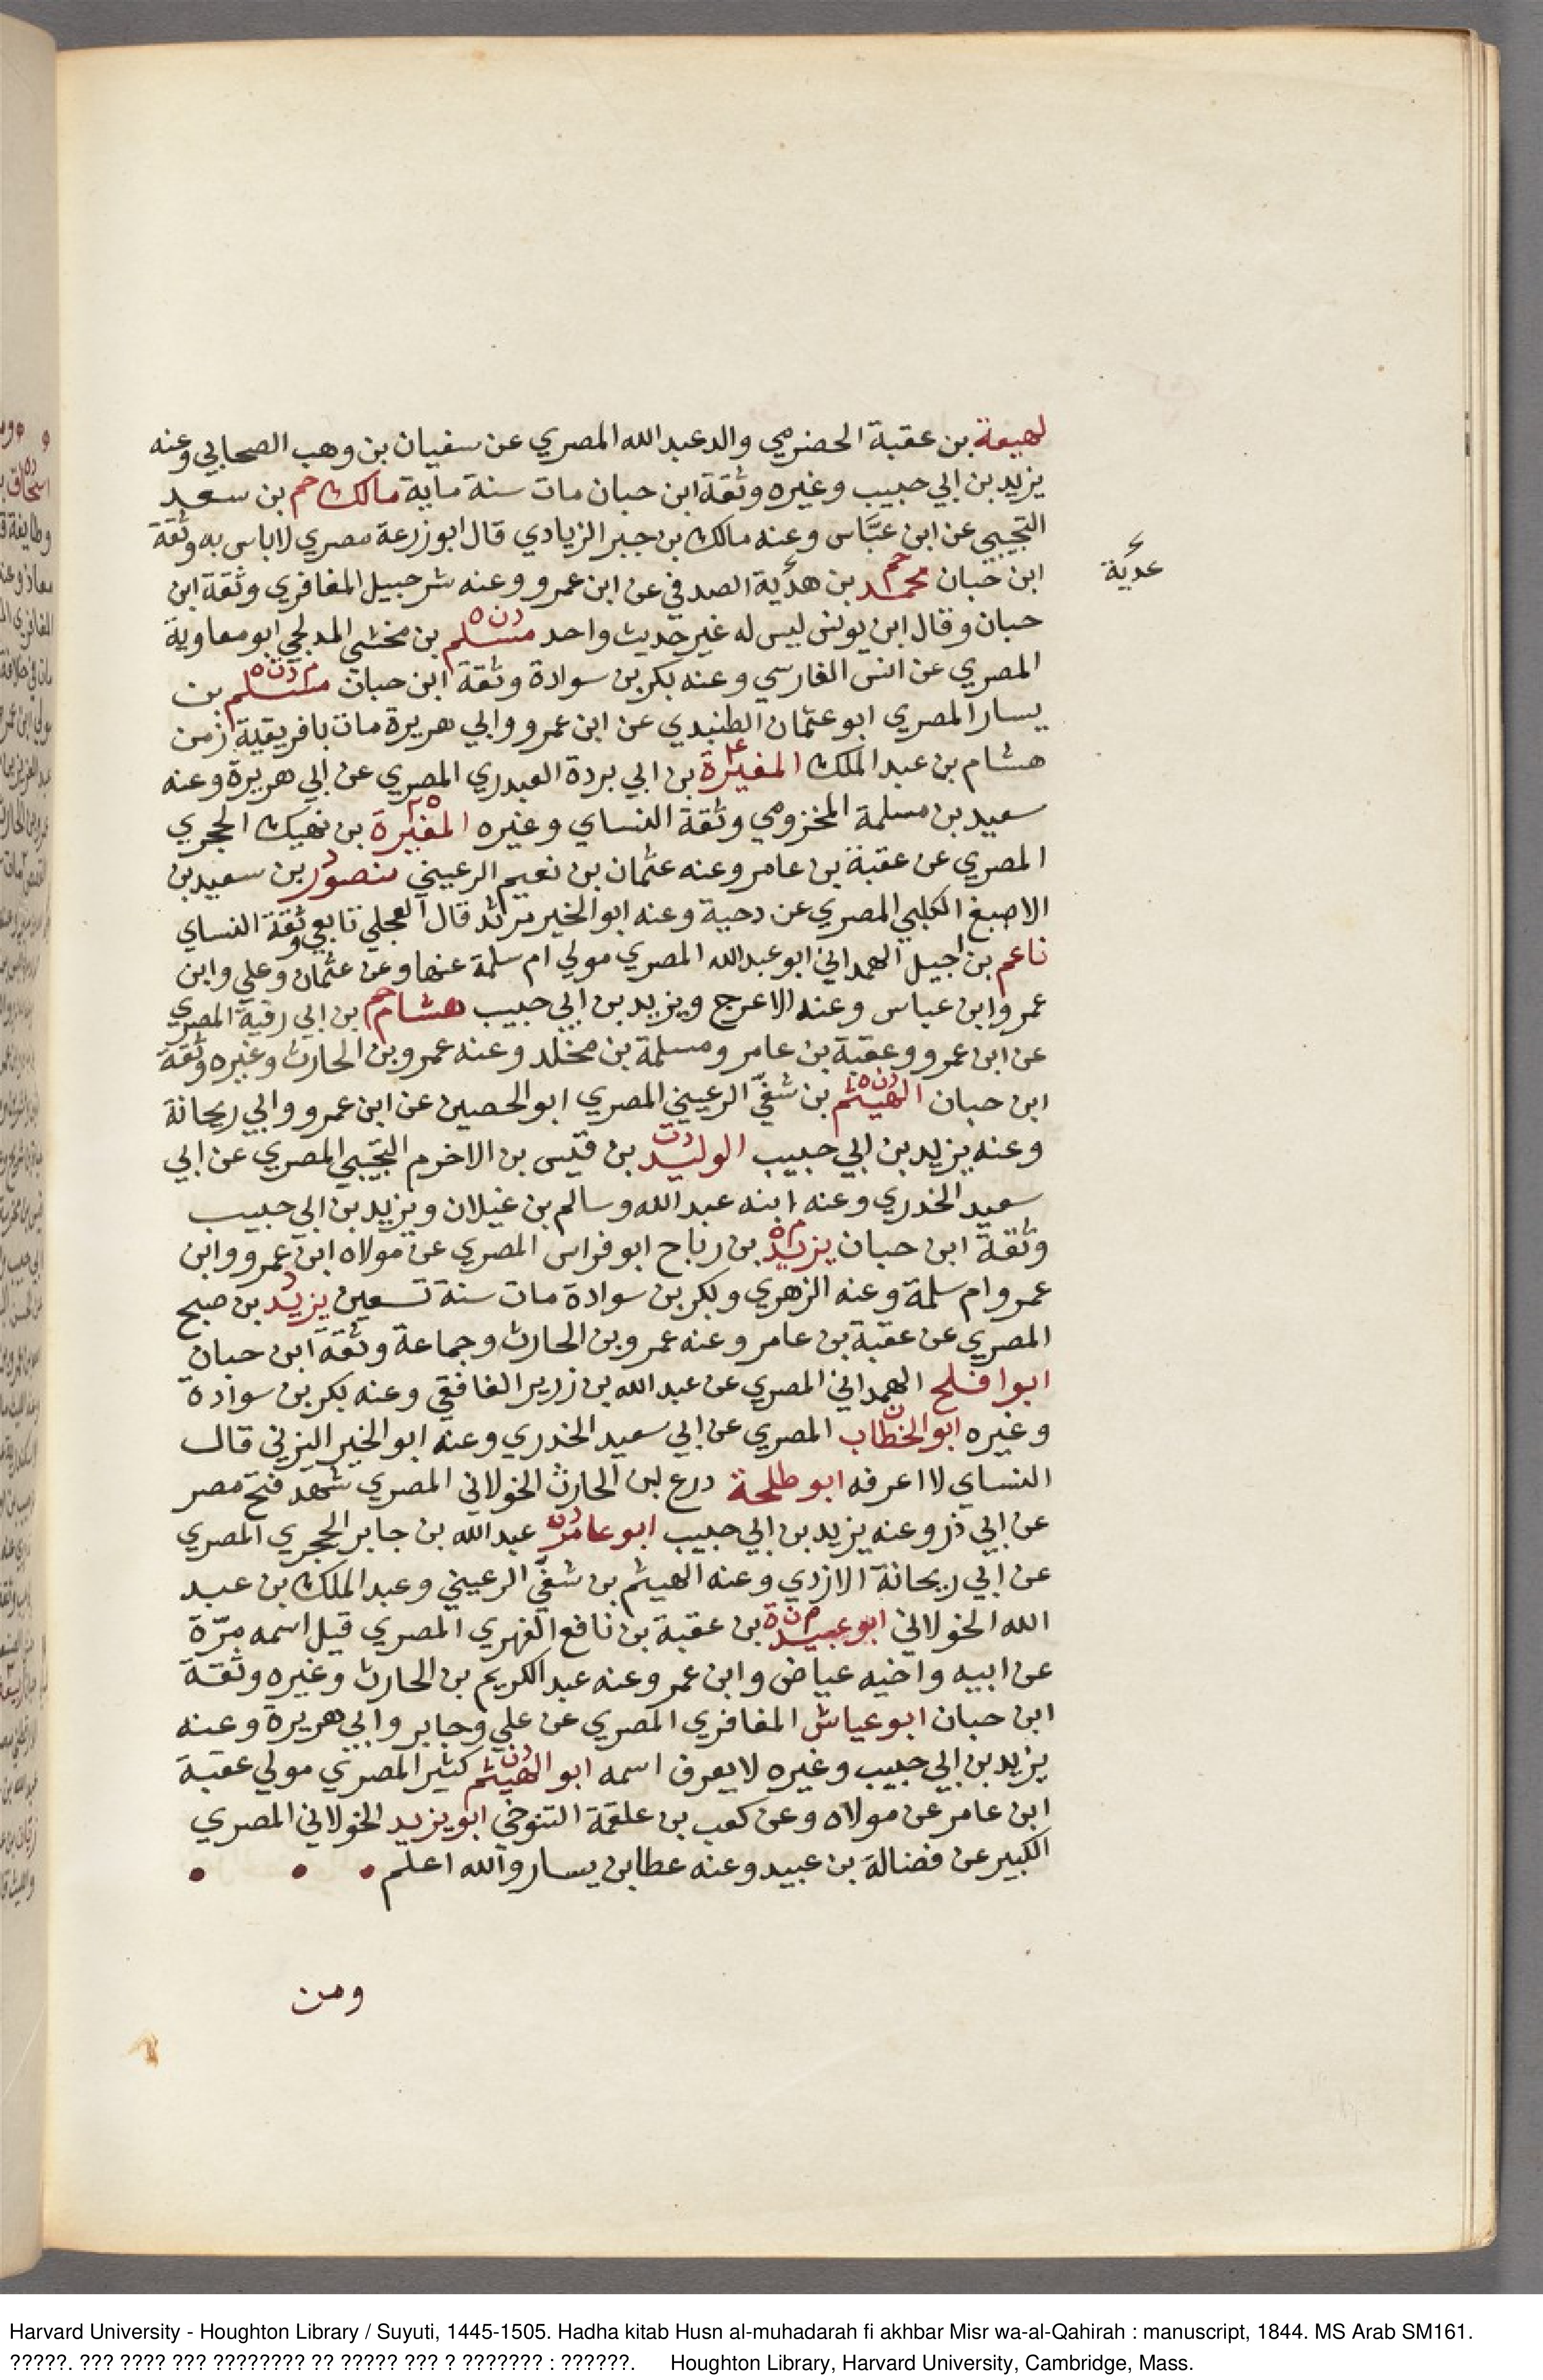 لهيعة بن عقبة الحضرمي والد عبد الله المصري عن سفيان بن وهب الصحابي وعنه
يزيد بن ابي حبيب وغيره وثقة ابن حبان مات سنة ماية مالك حم بن سعد
التجيبي عن ابن عبَّاس وعنه مالك بن جبر الزيادي قال ابو زرعة مصري لا باس به وثقة
ابن حبان محمد حم بن هدية الصدفي عن ابن عمرو وعنه شرحبيل المغافري وثقة ابن
عدية
حبان وقال ابن يونس ليس له غير حديث واحد مسلم دن ه بن مخشي المدلجي ابو معاوية
المصري عن انس الفارسي وعنه بكر بن سوادة وثقة ابن حبان مسلم م دت ه بن
يسار المصري ابو عثمان الطنبدي عن ابن عمرو وابي هريرة مات بافريقية زمن
هشام بن عبد الملك المغيرة عل بن ابي بردة العبدري المصري عن ابي هريرة وعنه
سعيد بن مسلمة المخزومي وثقة النساي وغيره المغيرة ه بن نهيك الحجري
المصري عن عقبة بن عامر وعنه عثمان بن نعيم الرعيني منصور د بن سعيد بن
الاصبغ الكلبي المصري عن دحية وعنه ابو الخير مرثد قال العجلي تابعي وثقة النساي
ناعم بن اجيل الهمداني ابو عبد الله المصري مولي ام سلمة عنها وعن عثمان وعلي وابن
عمر وابن عباس وعنه الاعرج ويزيد بن ابي حبيب هشام حم بن ابي رقية المصري
عن ابن عمرو وعقبة بن عامر ومسلمة بن مخلد وعنه عمرو بن الحارث وغيره وثقة
ابن حبان الهيثم دن ه بن شفيّ الرعيني المصري ابو الحصين عن ابن عمرو وابي ريحانة
وعنه يزيد بن ابي حبيب الوليد دت بن قيس بن الاخرم التجيبي المصري عن ابي
سعيد الخدري وعنه ابنه عبد الله وسالم بن غيلان ويزيد بن ابي حبيب
وثقة ابن حبان يزيد م ه بن رباح ابو فراس المصري عن مولاه ابن عمرو وابن
عمر وام سلمة وعنه الزهري وبكر بن سوادة مات سنة تسعين يزيد د بن صبح
المصري عن عقبة بن عامر وعنه عمرو بن الحارث وجماعة وثقة ابن حبان
ابو افلح الهمداني المصري عن عبد الله بن زرير الغافقي وعنه بكر بن سوادة
وغيره ابو الخطاب ن المصري عن ابي سعيد الخدري وعنه ابو الخير اليزني قال
النساي لا اعرفه ابو طلحة درع بن الحارث الخولاني المصري شهد فتح مصر
عن ابي ذر وعنه يزيد بن ابي حبيب ابو عامر دن عبد الله بن جابر الحجري المصري
عن ابي ريحانة الازدي وعنه الهيثم بن شفيّ الرعيني وعبد الملك بن عبد
الله الخولاني ابو عبيدة م ن بن عقبة بن نافع الفهري المصري قيل اسمه مرّة
عن ابيه واخيه عياض وابن عمر وعنه عبد الكريم بن الحارث وغيره وثقة
ابن حبان ابو عياش المغافري المصري عن علي وجابر وابي هريرة وعنه
يزيد بن ابي حبيب وغيره لا يعرف اسمه ابو الهيثم دن كثير المصري مولي عقبة
ابن عامر عن مولاه وعن كعب بن علقمة التنوخي ابو يزيد الخولاني المصري
الكبير عن فضالة بن عبيد وعنه عطا بن يسار والله اعلم
ومن
Harvard University - Houghton Library / Suyuti, 1445-1505. Hadha kitab Husn al-muhadarah fi akhbar Misr wa-al-Qahirah : manuscript, 1844. MS Arab SM161.
?????. ??? ???? ??? ???????? ?? ????? ??? ? ??????? : ??????. Houghton Library, Harvard University, Cambridge, Mass.